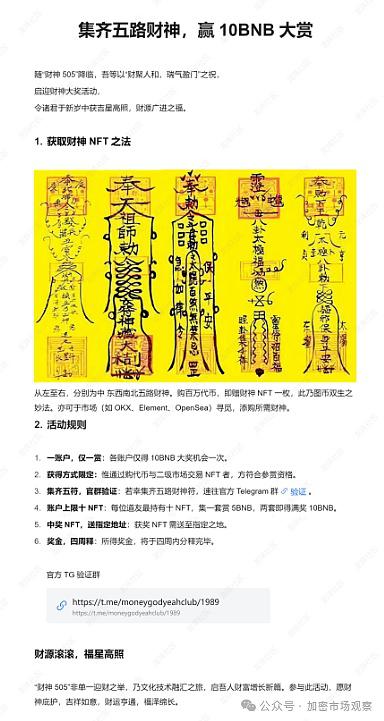 集齐五路财神，赢 10BNB 大赏
随“财神 505”降临，吾等以“财聚人和，瑞气盈门”之祝，
启迎财神大奖活动，
令诸君于新岁中获吉星高照，财源广进之福。
1. 获取财神 NFT 之法
奉天祖師勅令
保平安
从左至右，分别为中 东西南北五路财神。购百万代币，即赠财神 NFT 一枚，此乃图币双生之
妙法。亦可于市场（如 OKX、Element、OpenSea）寻觅，添购所需财神。
2. 活动规则
1. 一账户，仅一赏：各账户仅得 10BNB 大奖机会一次。
2. 获得方式限定：惟通过购代币与二级市场交易 NFT 者，方符合参赏资格。
3. 集齐五符，官群验证：若幸集齐五路财神符，速往官方 Telegram 群 验证 。
4. 账户上限十 NFT：每位道友最持有十 NFT，集一套赏 5BNB，两套即得满奖 10BNB。
5. 中奖 NFT，送指定地址：获奖 NFT 需送至指定之地。
6. 奖金，四周释：所得奖金，将于四周内分释完毕。
官方 TG 验证群
https://t.me/moneygodyeahclub/1989
https://t.me/moneygodyeahclub/1989
财源滚滚，福星高照
“财神 505”非单一迎财之举，乃文化技术融汇之旅，启吾人财富增长新篇。参与此活动，愿财
神庇护，吉祥如意，财运亨通，福泽绵长。
公众号 · 加密市场观察